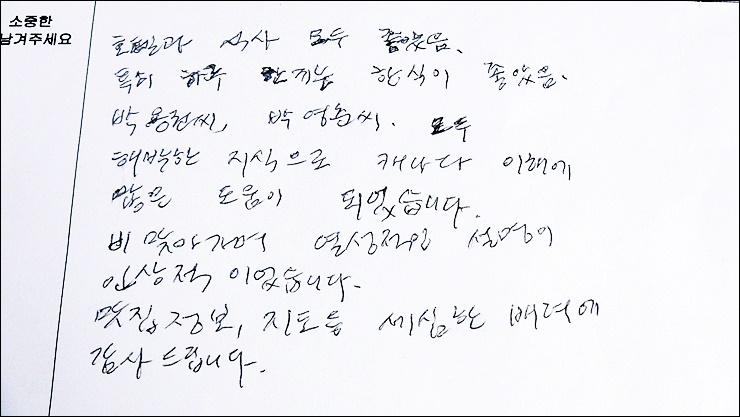 소중한
남겨주세요
호텔과 식사 모두 좋았음.
특히 하루 한끼는 한식이 좋았음.
박용현씨, 박영훈씨. 모두
해박한 지식으로 캐나다 이해에
많은 도움이 되었습니다.
비 맞아가며 열성적인 설명이
인상적 이었습니다.
맛집정보, 지도등 세심한 배려에
감사 드립니다.